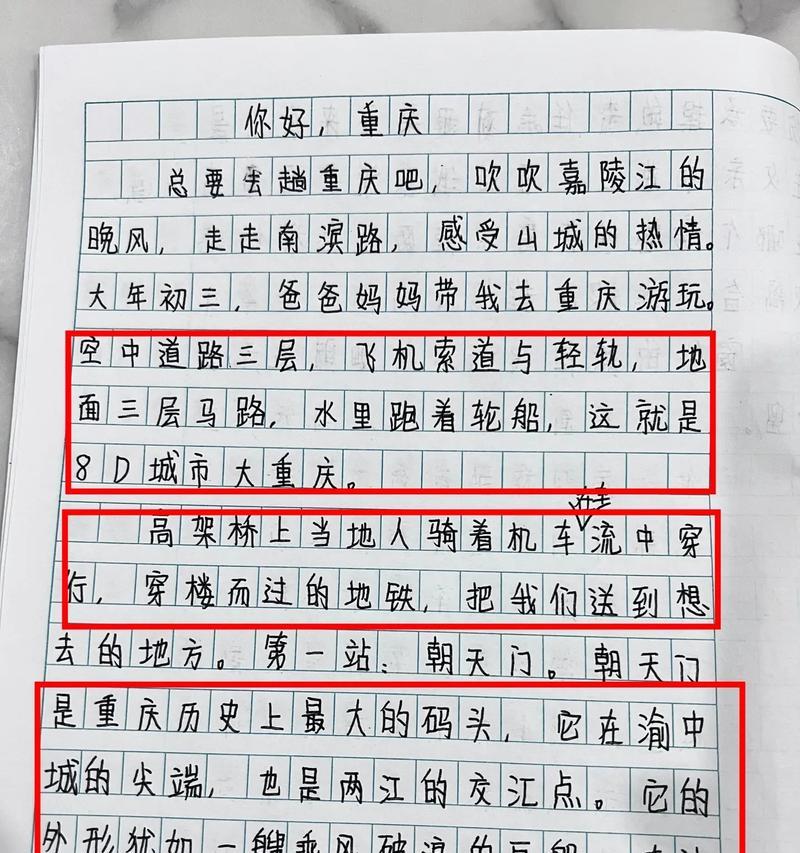 你好，重庆
总要去趟重庆吧，吹吹嘉陵江的
晚风，走走南滨路，感受山城的热情。
大年初三，爸爸妈妈带我去重庆游玩。
空中道路三层，飞机索道与轻轨，地
面三层马路，水里跑着轮船，这就是
8D城市大重庆。
在车
高架桥上当地人骑着机车流中穿
行，穿楼而过的地铁，把我们送到想
去的地方。第一站：朝天门。朝天门
是重庆历史上最大的码头，它在渝中
城的尖端，也是两江的交汇点。它的
外形犹如一艘乘风破浪的巨船